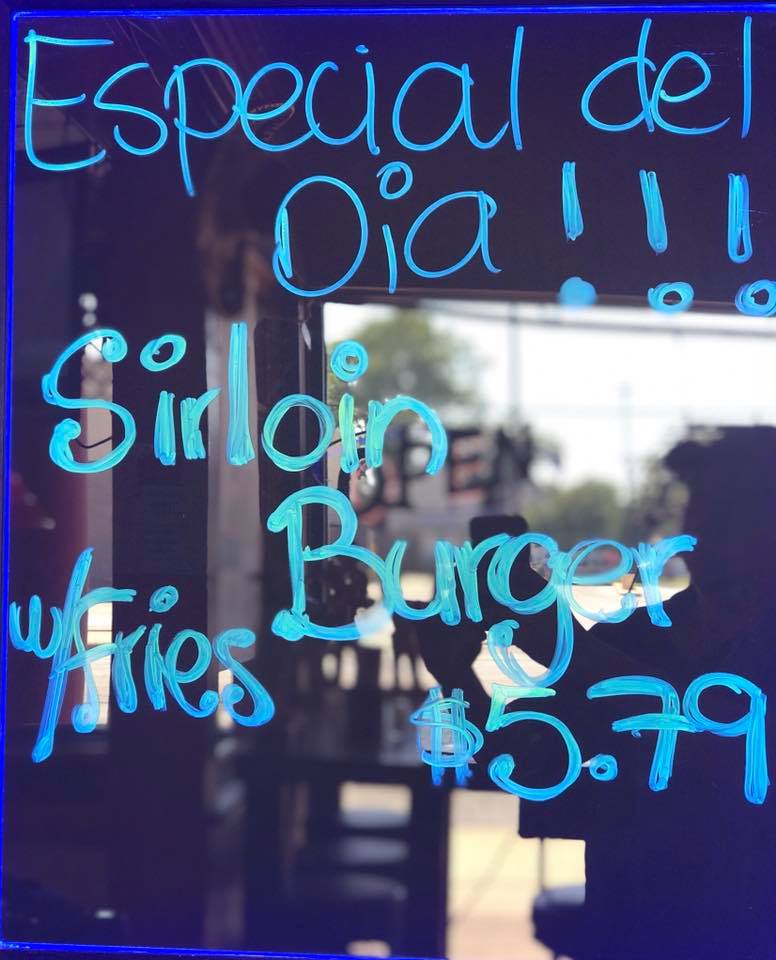 Especial del
Dia !!!
Sirloin
Burger
w/fries
$5.79
OPEN